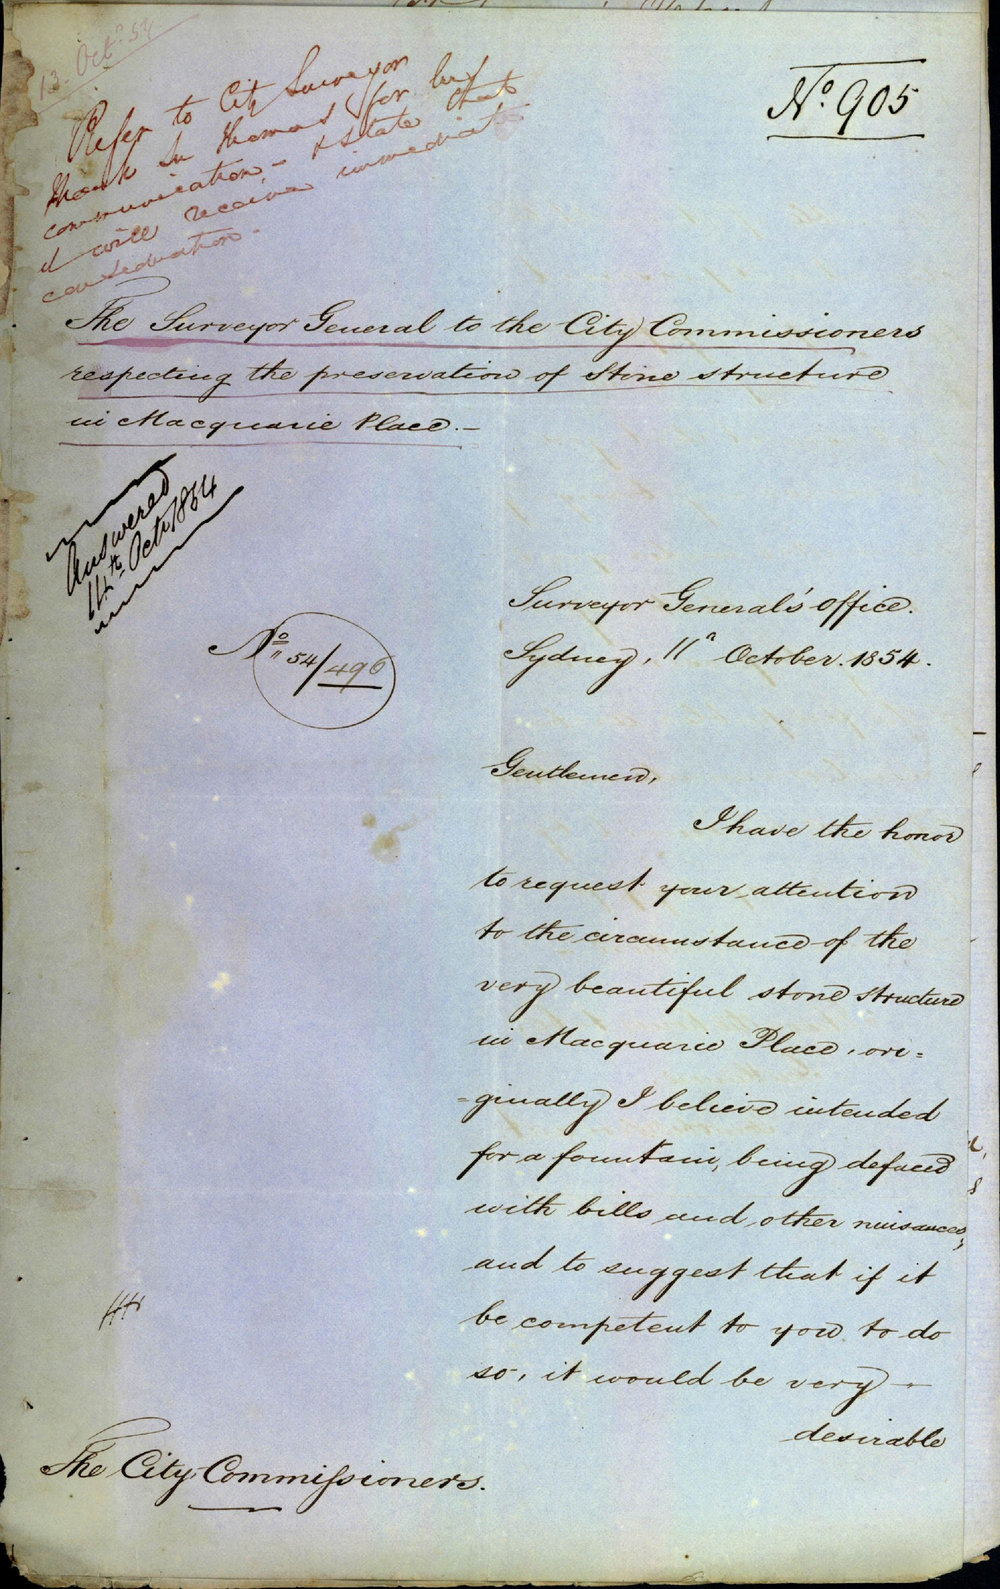 13. Octr. 54
Refer to City Surveyor
thank Sir Thomas for his
communication - & state that
it will receive immediate
consideration -
No. 905
The Surveyor General to the City Commissioners
respecting the preservation of Stone structure
in Macquarie Place. -
Answered
14th Octr 1854
No. 54/496
Surveyor General's Office.
Sydney, 11 October. 1854.
Gentlemen,
I have the honor
to request your attention
to the circumstance of the
very beautiful stone structure
in Macquarie Place, ori=
=ginally I believe intended
for a fountain, being defaced
with bills and other nuisances,
and to suggest that if it
be competent to you to do
so, it would be very -
desirable
The City Commissioners.